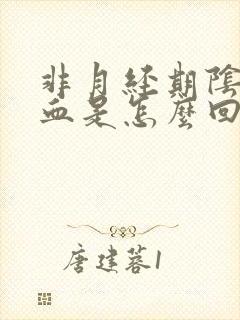 非月经期陰
血是怎麼回
唐建蓉1